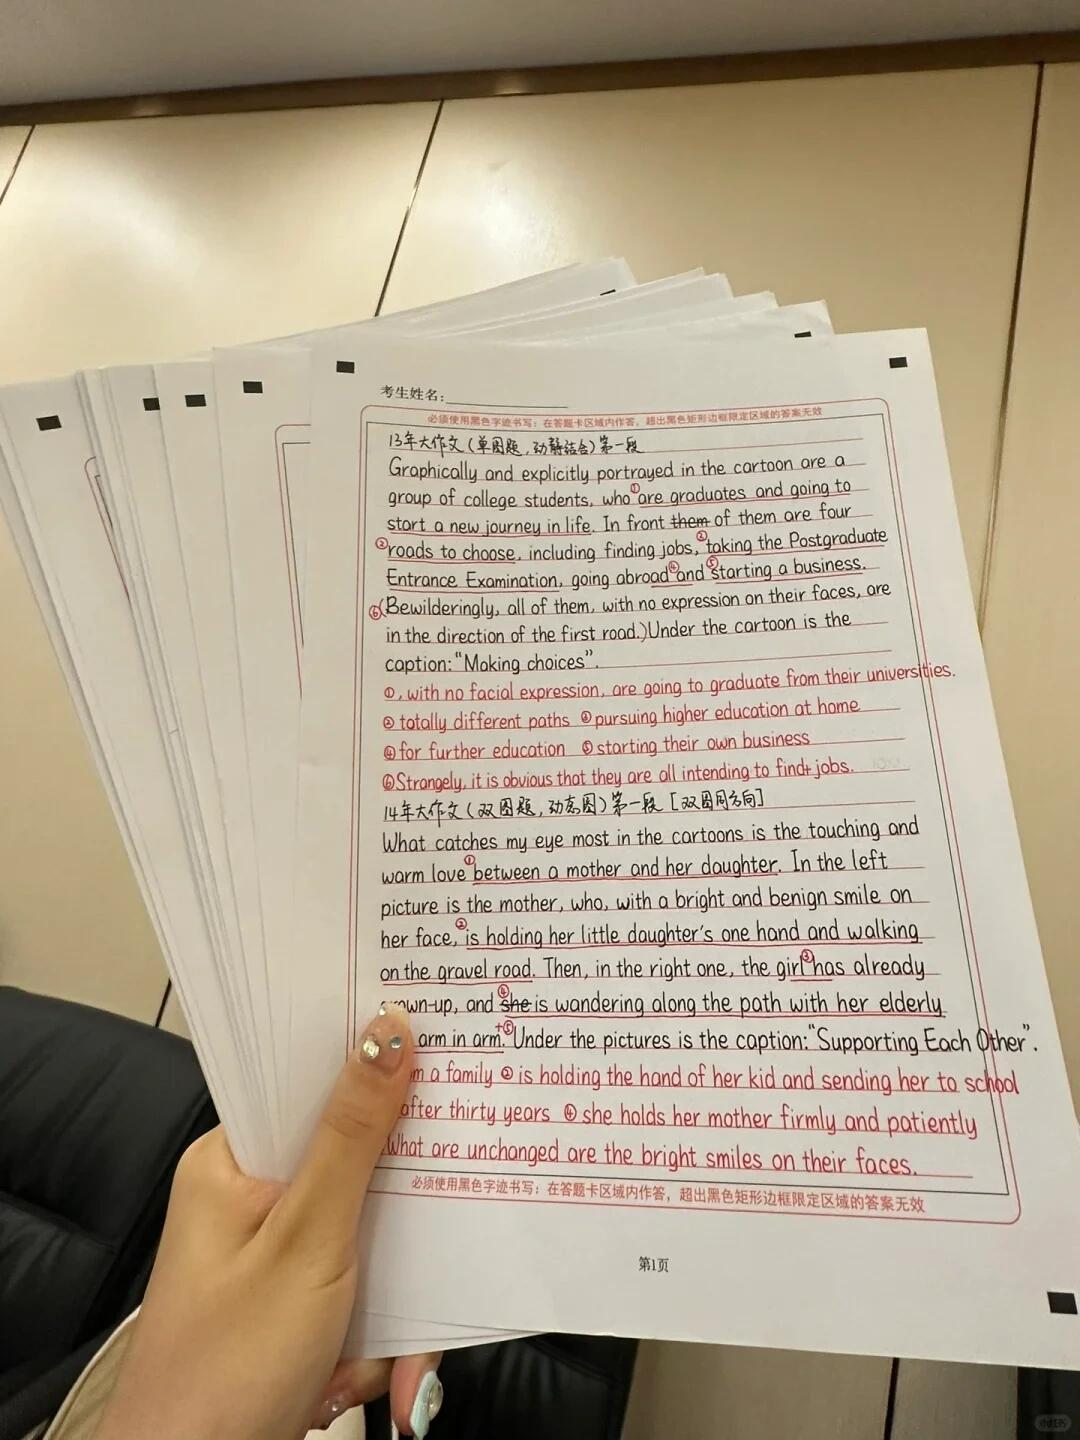 考生姓名:
必须使用黑色字迹书写：在答题卡区域内作答，超出黑色矩形边框限定区域的答案无效
13年大作文(单图题,动静结合)第一段
Graphically and explicitly portrayed in the cartoon are a
group of college students, who ①are graduates and going to
start a new journey in life. In front them of them are four
②roads to choose, including finding jobs, ③taking the Postgraduate
Entrance Examination, going abroad ④and ⑤starting a business.
⑥(Bewilderingly, all of them, with no expression on their faces, are
in the direction of the first road.) Under the cartoon is the
caption:"Making choices".
①, with no facial expression, are going to graduate from their universities.
② totally different paths ③pursuing higher education at home
④for further education ⑤starting their own business
⑥Strangely, it is obvious that they are all intending to find jobs.
14年大作文(双图题,动态图)第一段[双图同方向]
What catches my eye most in the cartoons is the touching and
warm love ①between a mother and her daughter. In the left
picture is the mother, who, with a bright and benign smile on
her face, ②is holding her little daughter's one hand and walking
on the gravel road. Then, in the right one, the girl ③has already
own-up, and ④she is wandering along the path with her elderly
arm in arm.+⑤Under the pictures is the caption:"Supporting Each Other".
m a family ②is holding the hand of her kid and sending her to school
after thirty years ④she holds her mother firmly and patiently
What are unchanged are the bright smiles on their faces.
必须使用黑色字迹书写：在答题卡区域内作答，超出黑色矩形边框限定区域的答案无效
第1页
小红书